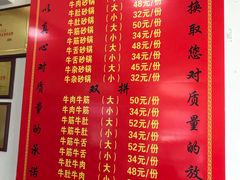 牛肉砂锅（小）32元/份
牛肚砂锅（大）48元/份
牛肚砂锅（小）32元/份
牛筋砂锅（大）50元/份
牛筋砂锅（小）34元/份
牛舌砂锅（大）52元/份
牛舌砂锅（小）34元/份
牛杂砂锅（大）45元/份
牛杂砂锅（小）32元/份
双拼
牛肉牛筋（大）50元/份
牛肉牛筋（小）34元/份
牛筋牛肚（大）52元/份
牛筋牛肚（小）34元/份
牛筋牛舌（大）52元/份
牛筋牛舌（小）34元/份
牛肚牛肉（大）48元/份
以真心对质量的承诺
换取您对质量的放